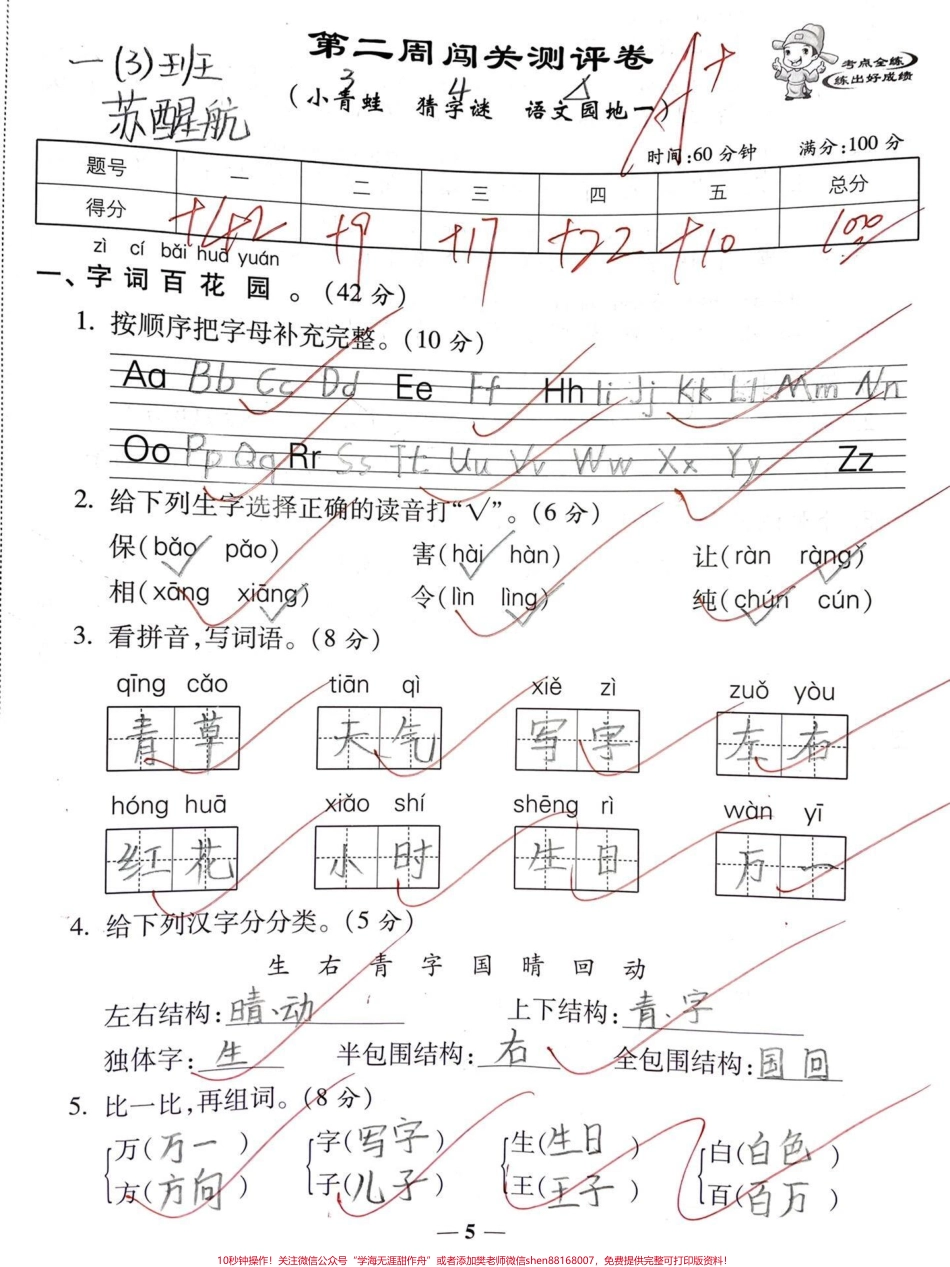 一(3)班
苏醒航
第二周闯关测评卷
A+
考点全练
练出好成绩
3 4
(小青蛙 猜字谜 语文园地一)
时间:60分钟 满分:100分
题号 一 二 三 四 五 总分
得分 +42 +9 +17 +22 +10 100
zì cí bǎi huā yuán
一、字词百花园。(42分)
1. 按顺序把字母补充完整。(10分)
Aa Bb Cc Dd Ee Ff Hh Ii Jj Kk Ll Mm Nn
Oo Pp Qq Rr Ss Tt Uu Vv Ww Xx Yy Zz
2. 给下列生字选择正确的读音打“√”。(6分)
保(bǎo√ pǎo) 害(hài√ hàn) 让(ràn ràng√)
相(xāng xiāng√) 令(lìn lìng√) 纯(chún√ cún)
3. 看拼音,写词语。(8分)
qīng cǎo tiān qì xiě zì zuǒ yòu
青草 天气 写字 左右
hóng huā xiǎo shí shēng rì wàn yī
红花 小时 生日 万一
4. 给下列汉字分分类。(5分)
生 右 青 字 国 晴 回 动
左右结构:晴、动 上下结构:青、字
独体字:生 半包围结构:右 全包围结构:国 回
5. 比一比,再组词。(8分)
万(万一) 字(写字) 生(生日) 白(白色)
方(方向) 子(儿子) 王(王子) 百(百万)
— 5 —
10秒钟操作!关注微信公众号“学海无涯甜作舟”或者添加樊老师微信shen88168007,免费提供完整可打印版资料!